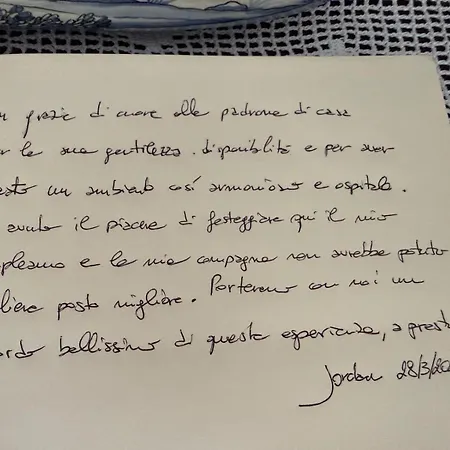 grazie di cuore alla padrona di casa
per la sua gentilezza, disponibilità e per aver
un ambiente così armonioso e ospitale.
avuto il piacere di festeggiare qui il mio
e la mia compagna non avrebbe potuto
posto migliore. Porteremo con noi un
bellissimo di questa esperienza, a presto
Jordan 28/3/20